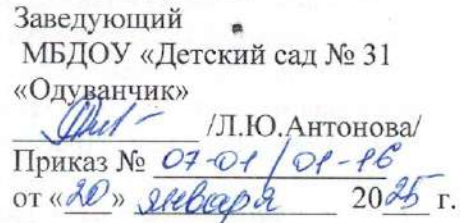 Заведующий
МБДОУ «Детский сад № 31
«Одуванчик»
/Л.Ю.Антонова/
Приказ № 07-01/01-16
от «20» января 2025 г.